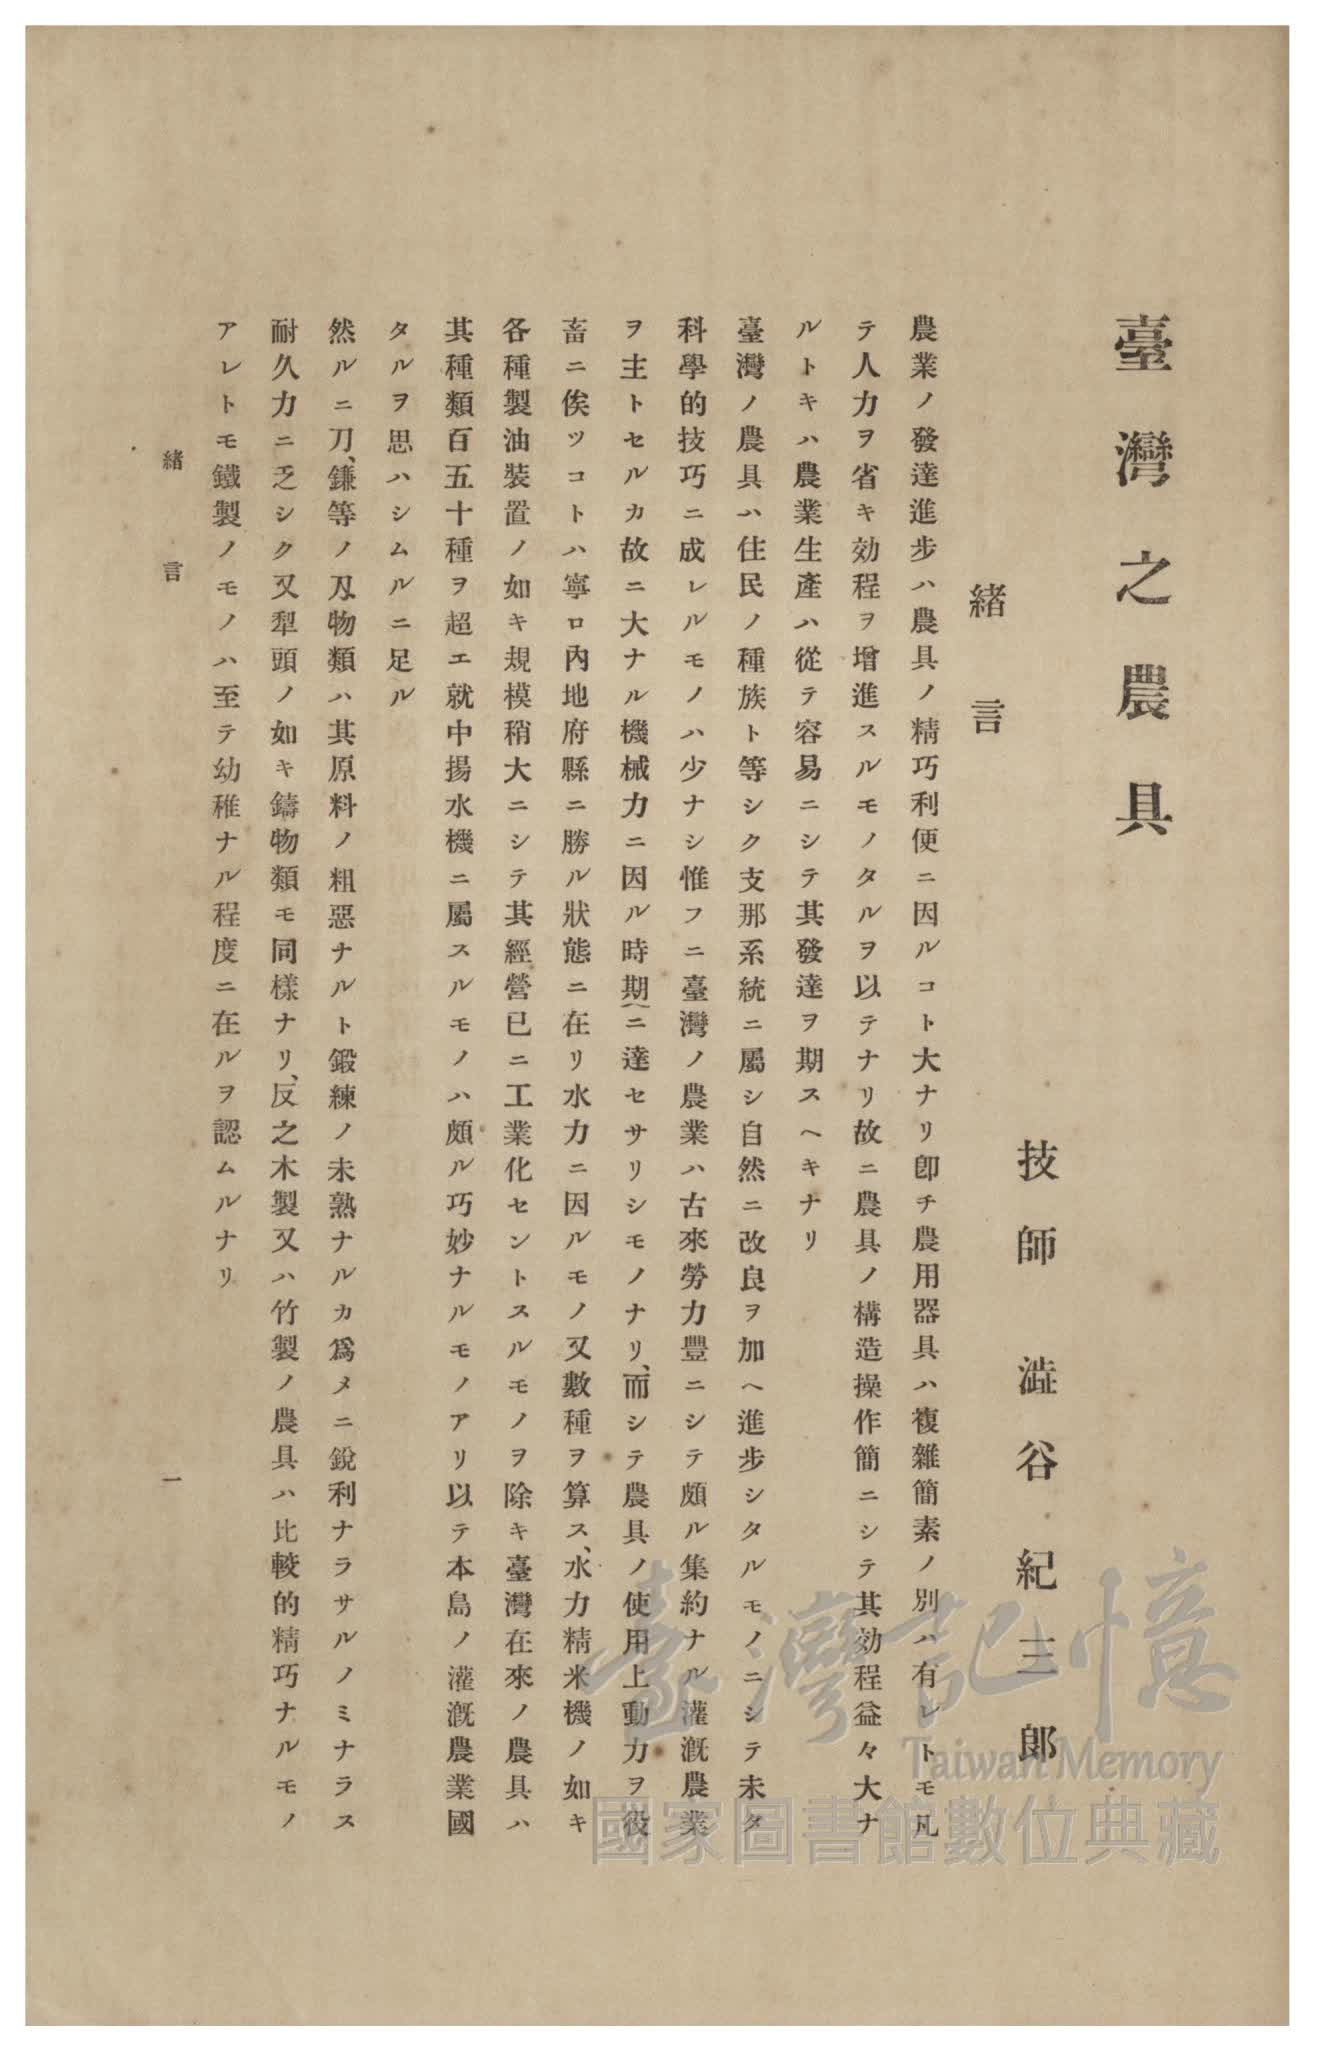 臺灣之農具
技師 澁谷紀三郎
緒言
農業ノ發達進步ハ農具ノ精巧利便ニ因ルコト大ナリ卽チ農用器具ハ複雜簡素ノ別ハ有レトモ凡
テ人力ヲ省キ効程ヲ增進スルモノタルヲ以テナリ故ニ農具ノ構造操作簡ニシテ其効程益々大ナ
ルトキハ農業生產ハ從テ容易ニシテ其發達ヲ期スヘキナリ
臺灣ノ農具ハ住民ノ種族ト等シク支那系統ニ屬シ自然ニ改良ヲ加ヘ進步シタルモノニシテ未タ
科學的技巧ニ成レルモノハ少ナシ惟フニ臺灣ノ農業ハ古來勞力豐ニシテ頗ル集約ナル灌漑農業
ヲ主トセルカ故ニ大ナル機械力ニ因ル時期ニ達セサリシモノナリ、而シテ農具ノ使用上動力ヲ役
畜ニ俟ツコトハ寧ロ內地府縣ニ勝ル狀態ニ在リ水力ニ因ルモノ又數種ヲ算ス、水力精米機ノ如キ
各種製油裝置ノ如キ規模稍大ニシテ其經營已ニ工業化セントスルモノヲ除キ臺灣在來ノ農具ハ
其種類百五十種ヲ超エ就中揚水機ニ屬スルモノハ頗ル巧妙ナルモノアリ以テ本島ノ灌漑農業國
タルヲ思ハシムルニ足ル
然ルニ刀、鎌等ノ刄物類ハ其原料ノ粗惡ナルト鍛練ノ未熟ナルカ爲メニ銳利ナラサルノミナラス
耐久力ニ乏シク又犂頭ノ如キ鑄物類モ同樣ナリ、反之木製又ハ竹製ノ農具ハ比較的精巧ナルモノ
アレトモ鐵製ノモノハ至テ幼稚ナル程度ニ在ルヲ認ムルナリ
緒言 一
臺灣記憶
Taiwan Memory
國家圖書館數位典藏